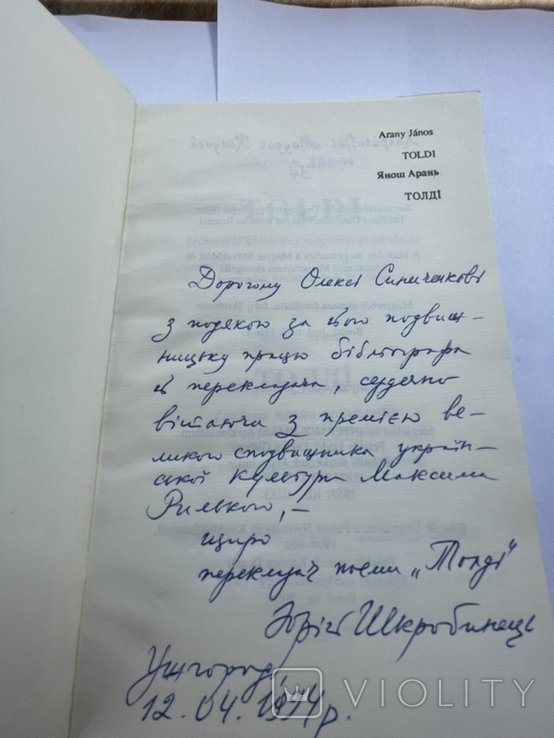 Arany János
TOLDI
Янош Арань
ТОЛДІ
Дорогому Олексі Синиченкові
з подякою за його подвиж-
ницьку працю бібліографа
й перекладача, сердечно
вітаючи з премією ве-
ликого сподвижника україн-
ської культури Максима
Рильського, –
щиро
перекладач поеми „Толді"
Юрій Шкробинець
Ужгород,
12.04. р.
VIOLITY